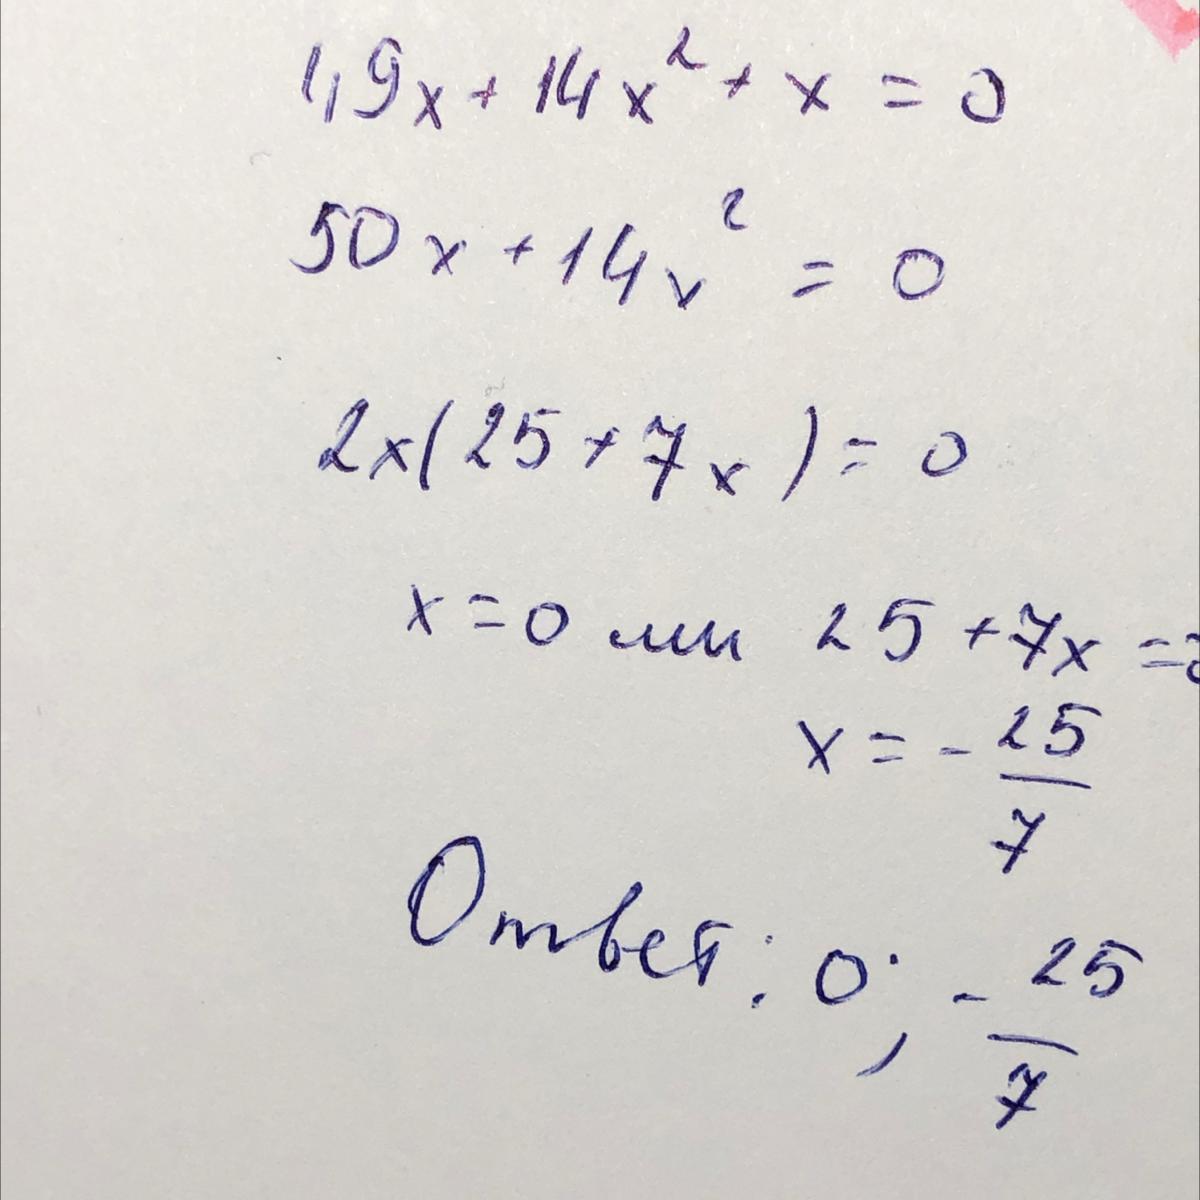 49x + 14x² + x = 0
50x + 14x² = 0
2x(25 + 7x) = 0
x = 0 или 25 + 7x = 0
x = - 25/7
Ответ: 0; - 25/7